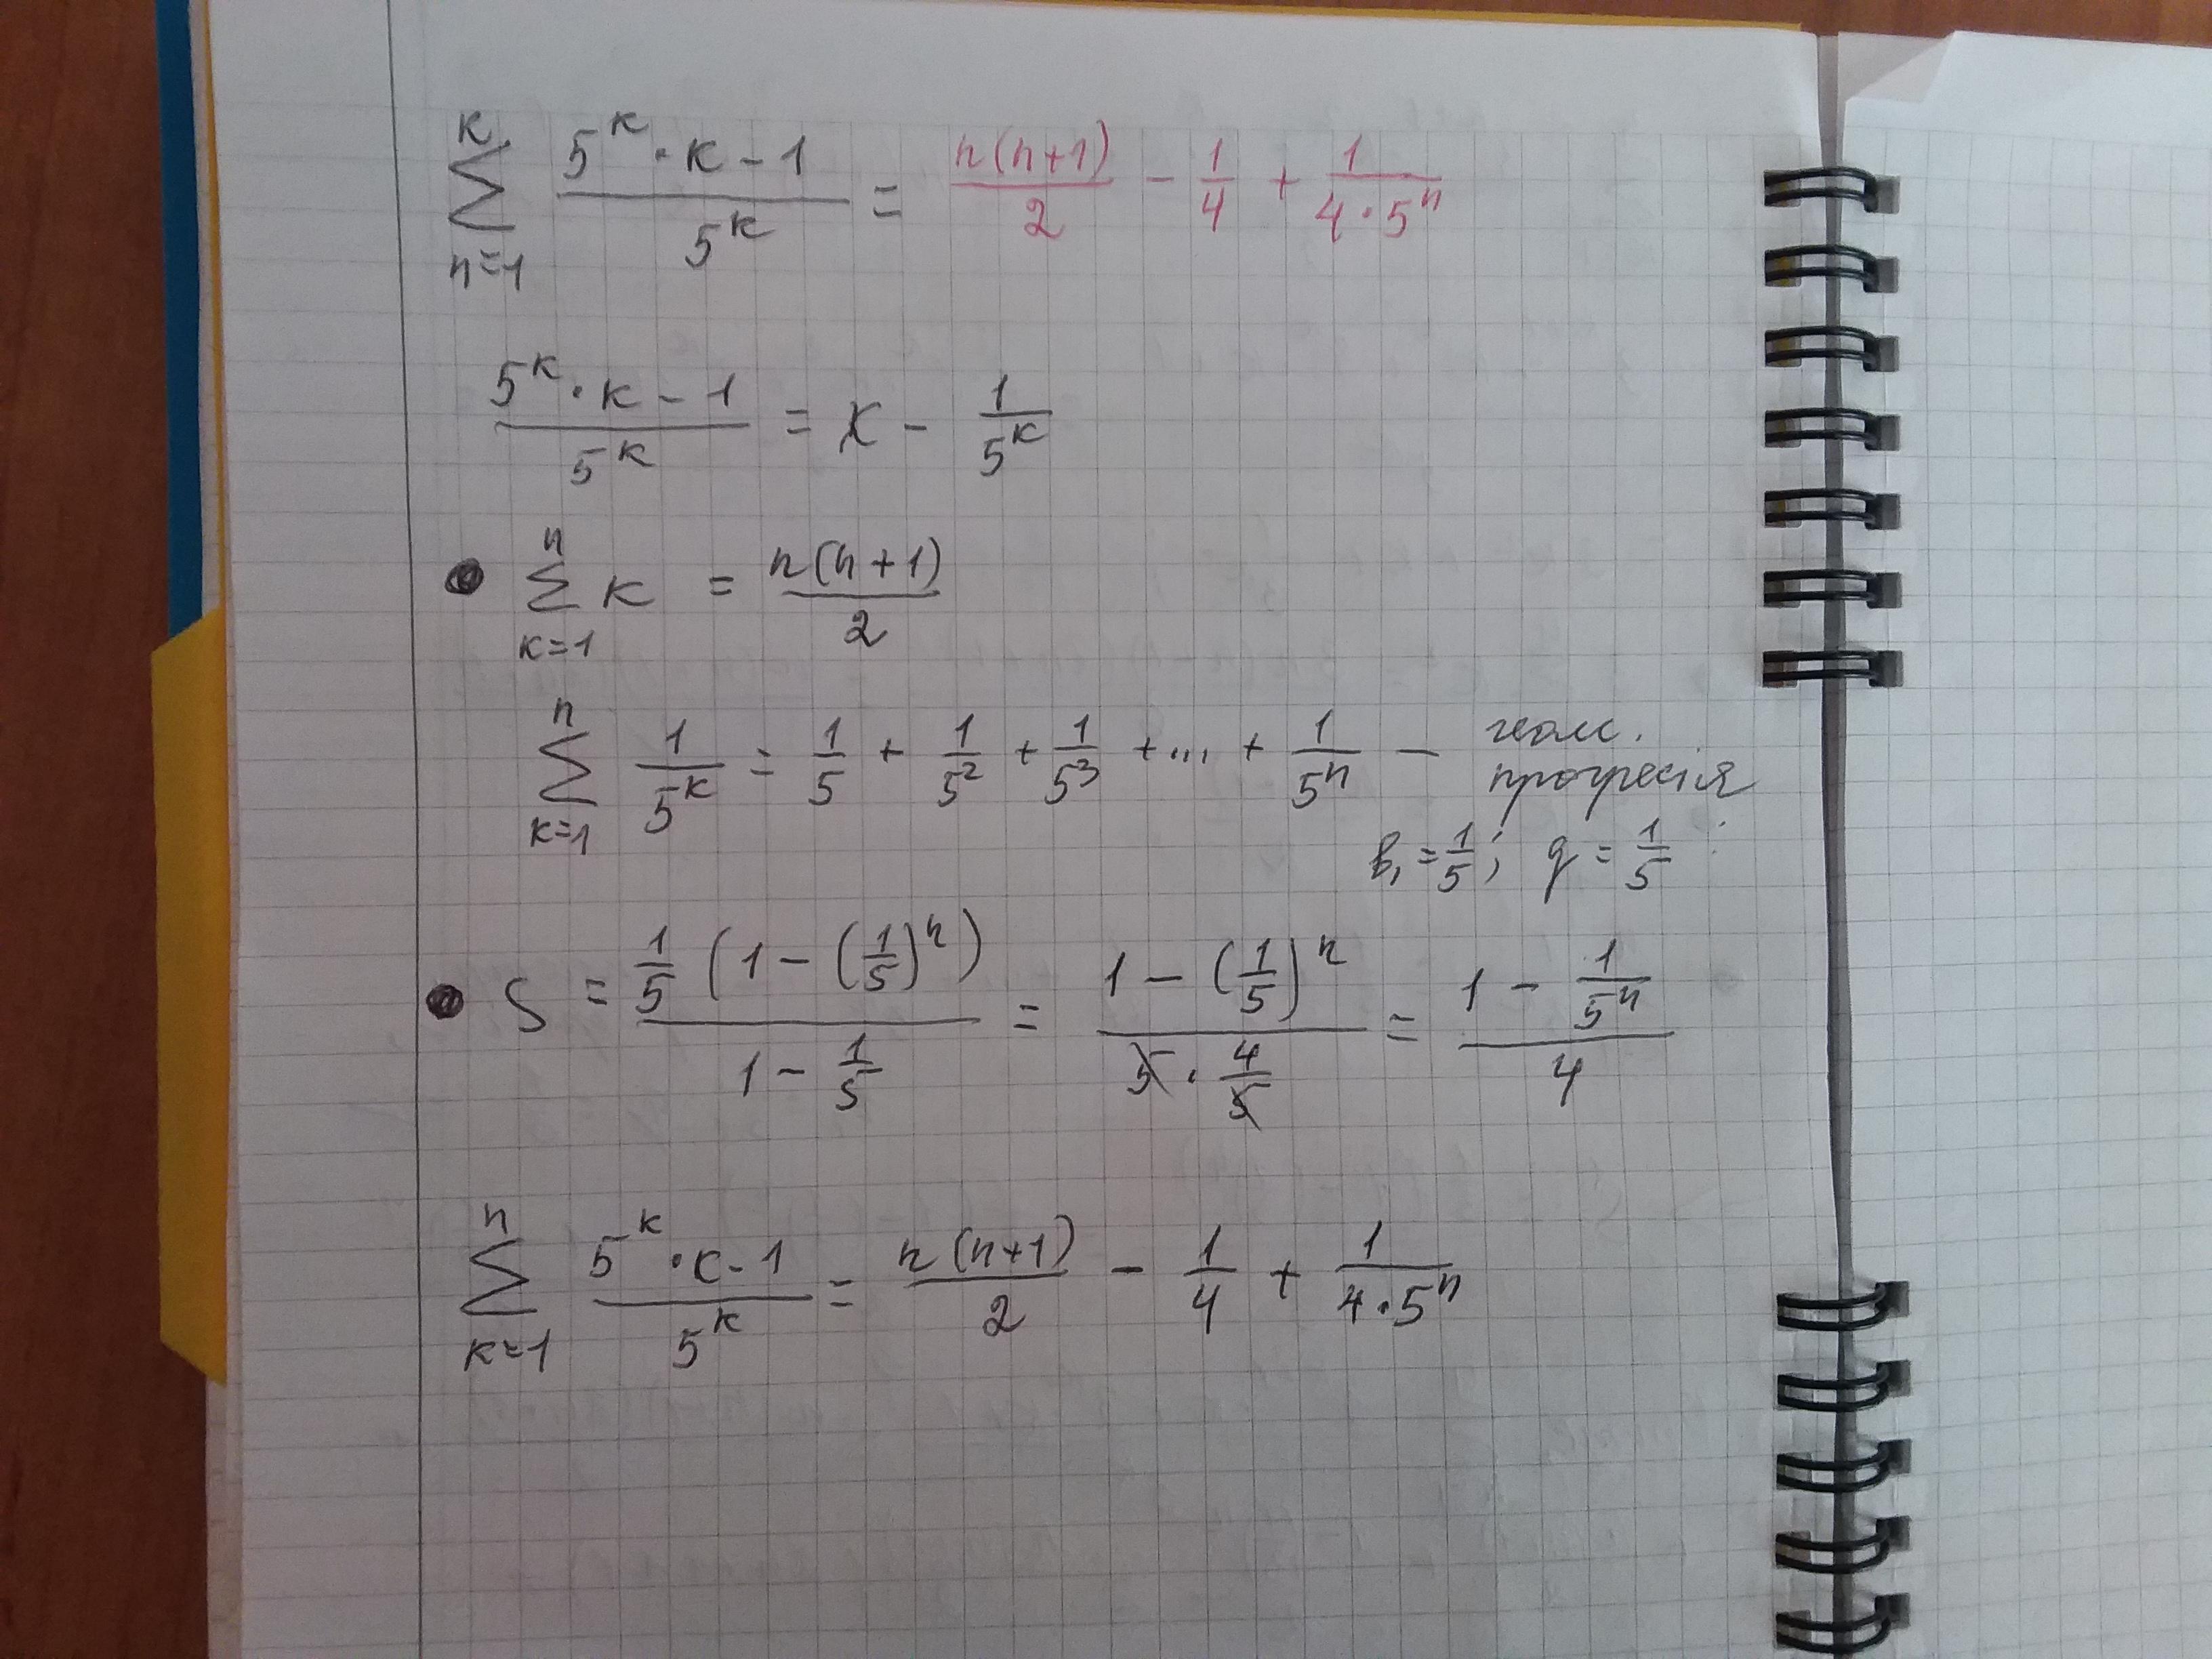 $\sum_{n=1}^{k} \frac{5^k \cdot k - 1}{5^k} = \frac{n(n+1)}{2} - \frac{1}{4} + \frac{1}{4 \cdot 5^n}$
$\frac{5^k \cdot k - 1}{5^k} = k - \frac{1}{5^k}$
• $\sum_{k=1}^{n} k = \frac{n(n+1)}{2}$
$\sum_{k=1}^{n} \frac{1}{5^k} = \frac{1}{5} + \frac{1}{5^2} + \frac{1}{5^3} + ... + \frac{1}{5^n}$ — геом.
прогресія
$b_1 = \frac{1}{5}; q = \frac{1}{5}$
• $S = \frac{\frac{1}{5}(1 - (\frac{1}{5})^n)}{1 - \frac{1}{5}} = \frac{1 - (\frac{1}{5})^n}{5 \cdot \frac{4}{5}} = \frac{1 - \frac{1}{5^n}}{4}$
$\sum_{k=1}^{n} \frac{5^k \cdot k - 1}{5^k} = \frac{n(n+1)}{2} - \frac{1}{4} + \frac{1}{4 \cdot 5^n}$